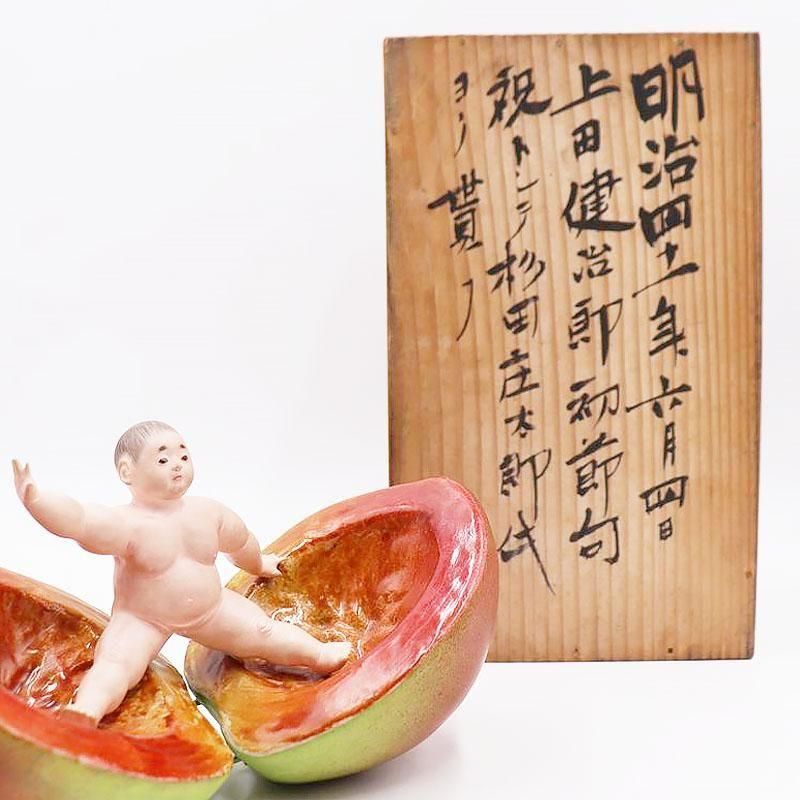 明治四十一年六月四日
上田健治郎初節句
祝トシテ杉田庄太郎氏
ヨリ貰フ